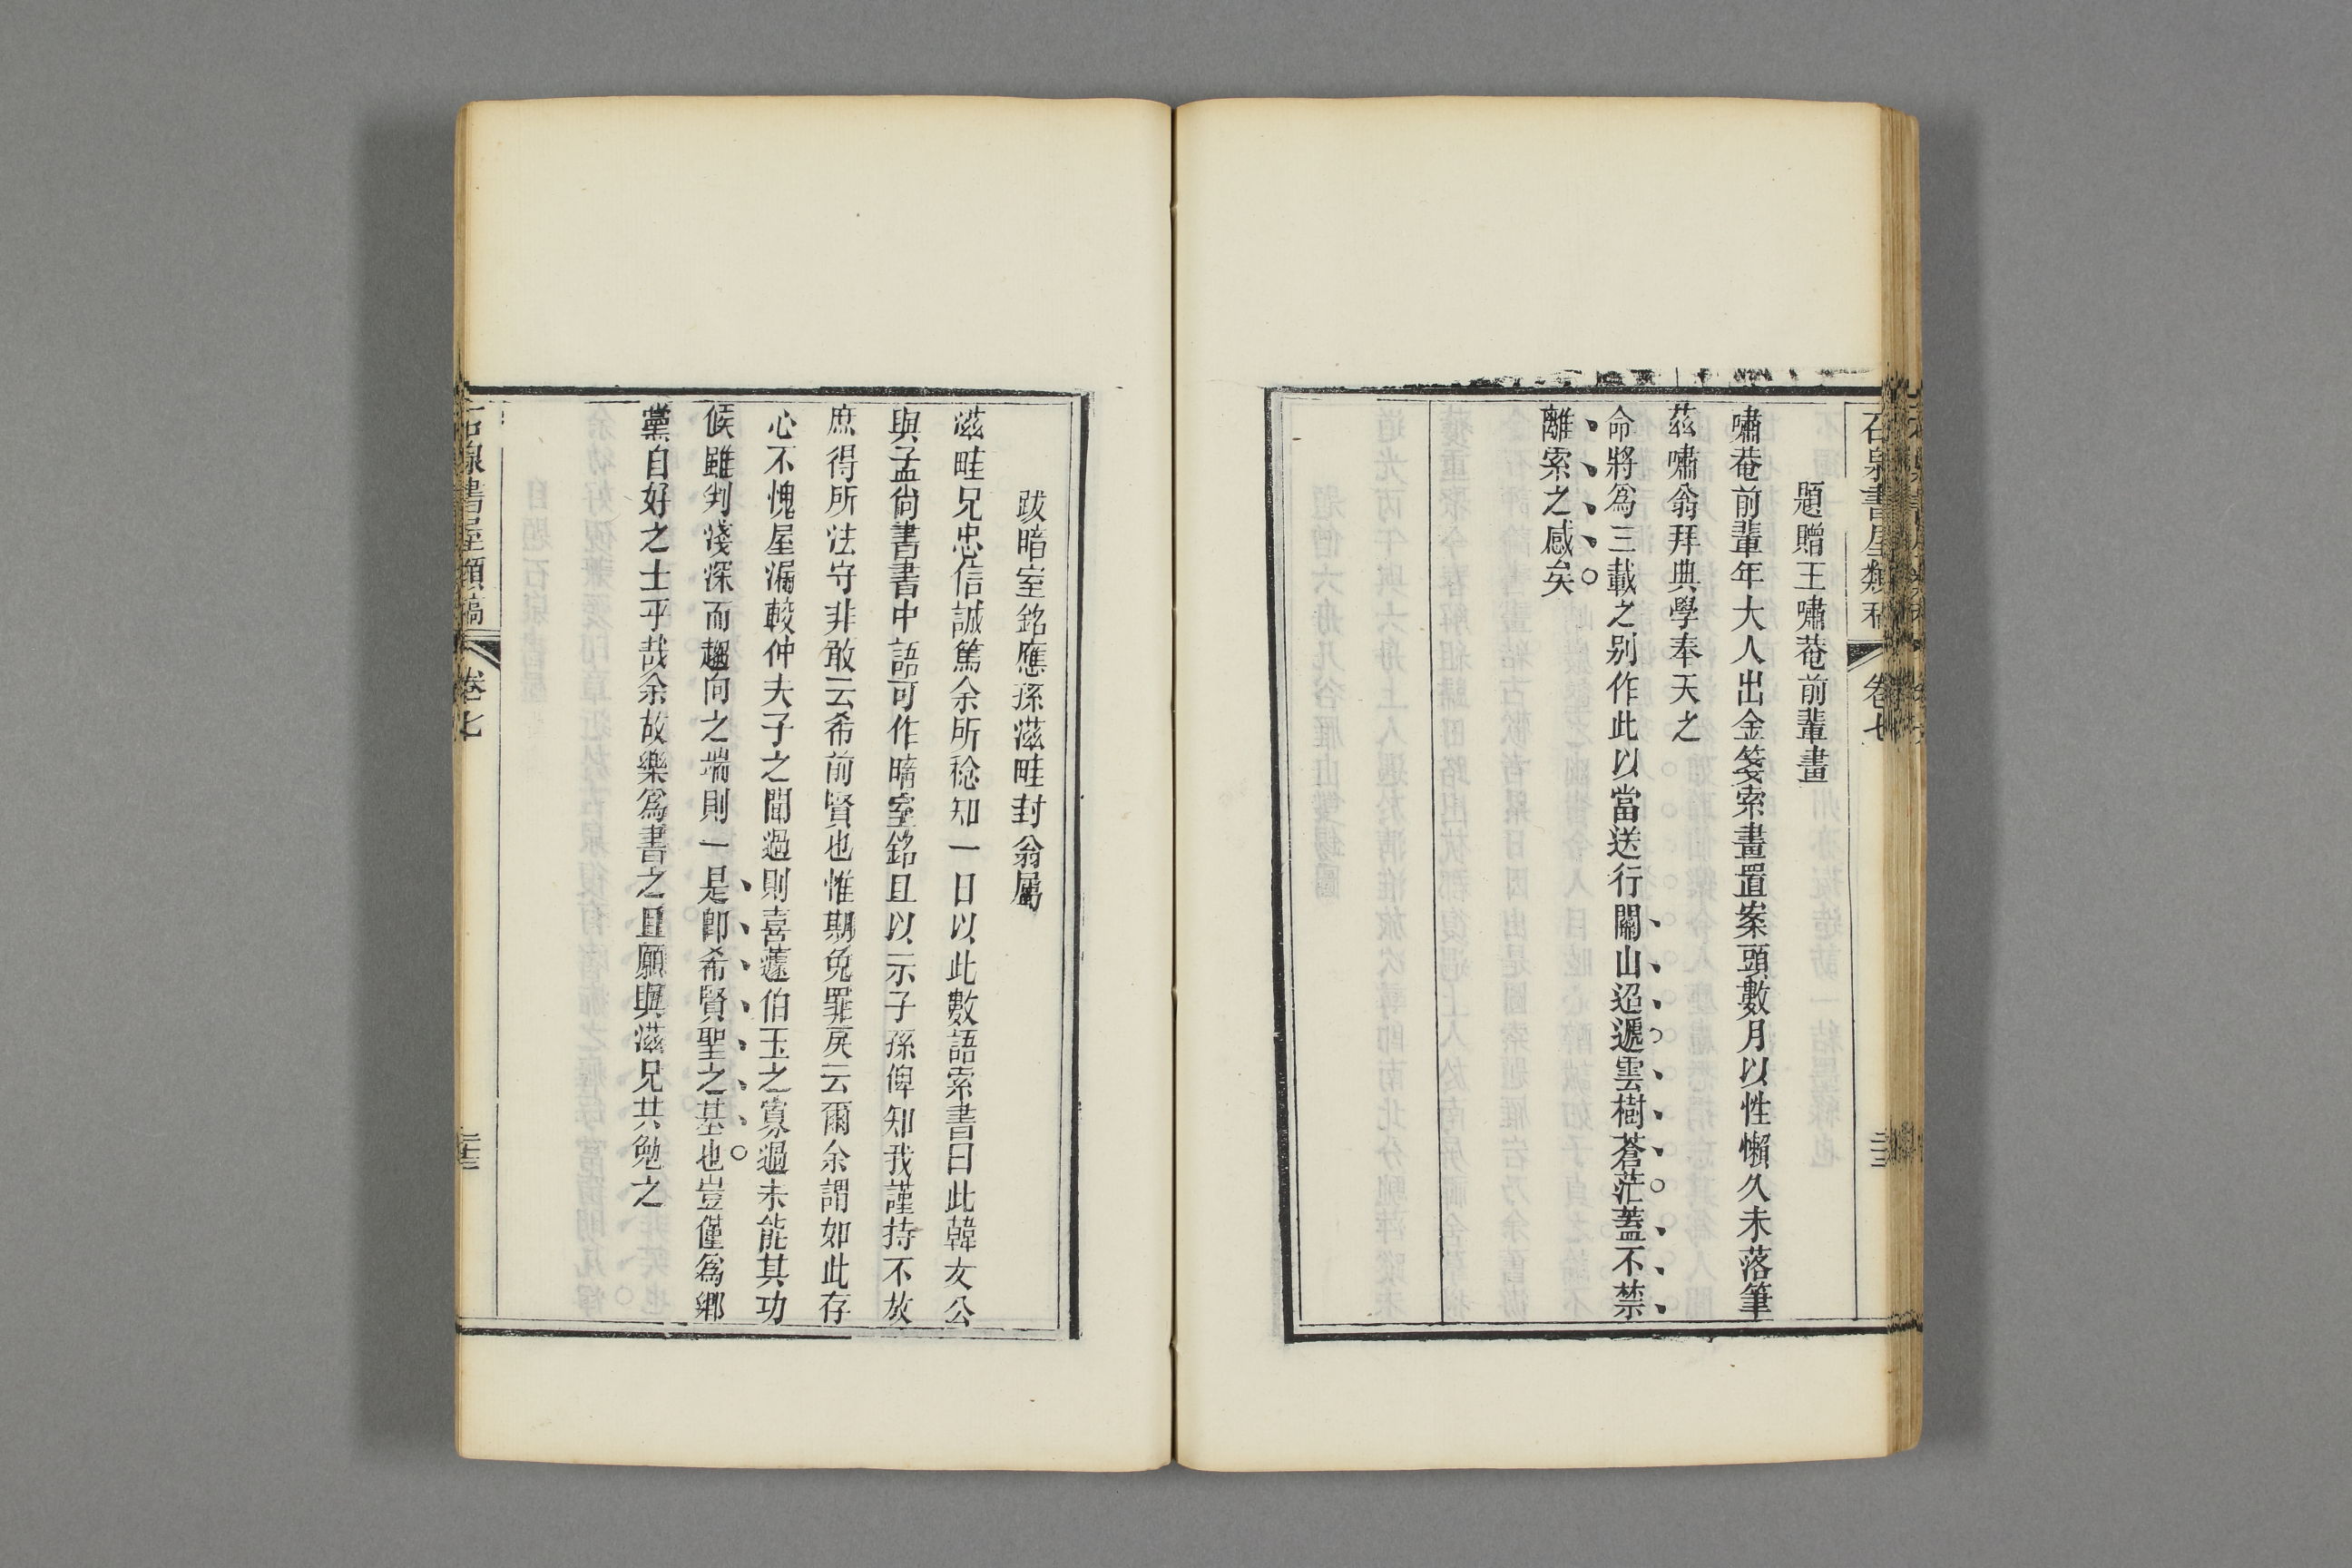 石泉書屋類稿
卷七
題贈王嘯菴前輩畫
嘯菴前輩年大人出金箋索畫置案頭數月以性懶久未落筆
茲嘯翁拜典學奉天之
命將爲三載之别作此以當送行關山迢遞雲樹蒼茫蓋不禁
離索之感矣
跋暗室銘應孫滋畦封翁屬
滋畦兄忠信誠篤余所稔知一日以此數語索書曰此韓友公
與孟尙書書中語可作暗室銘且以示子孫俾知我謹持不放
庶得所法守非敢云希前賢也惟期免罪戾云爾余謂如此存
心不愧屋漏較仲夫子之聞過則喜蘧伯玉之寡過未能其功
候雖判淺深而趨向之端則一是卽希賢聖之基也豈僅爲鄉
黨自好之士乎哉余故樂爲書之且願與滋兄共勉之
石泉書屋類稿
卷七